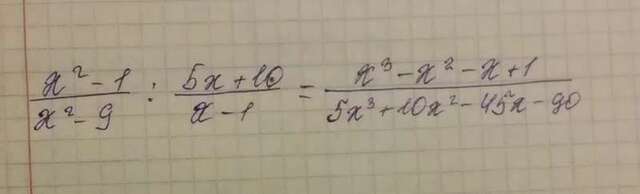 (x² - 1)/(x² - 9) : (5x + 10)/(x - 1) = (x³ - x² - x + 1)/(5x³ + 10x² - 45x - 90)